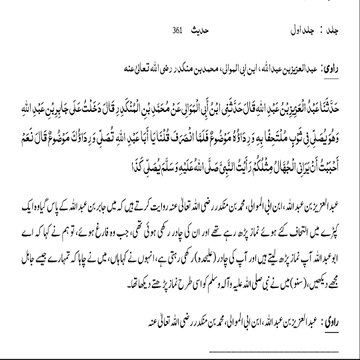 جلد : جلد اول حدیث 361
راوی : عبدالعزیز بن عبد اللہ، ابن ابی الموالی، محمد بن منکدر رضی اللہ تعالیٰ عنہ
حَدَّثَنَا عَبْدُ الْعَزِيزِ بْنُ عَبْدِ اللهِ قَالَ حَدَّثَنِي ابْنُ أَبِي الْمَوَالِي عَنْ مُحَمَّدِ بْنِ الْمُنْكَدِرِ قَالَ دَخَلْتُ عَلَى جَابِرِ بْنِ عَبْدِ اللهِ
وَهُوَ يُصَلِّي فِي ثَوْبٍ مُلْتَحِفًا بِهِ وَرِدَاؤُهُ مَوْضُوعٌ فَلَمَّا انْصَرَفَ قُلْنَا يَا أَبَا عَبْدِ اللهِ تُصَلِّي وَرِدَاؤُكَ مَوْضُوعٌ قَالَ نَعَمْ
أَحْبَبْتُ أَنْ يَرَانِي الْجُهَّالُ مِثْلُكُمْ رَأَيْتُ النَّبِيَّ صَلَّى اللهُ عَلَيْهِ وَسَلَّمَ يُصَلِّي كَذَا
عبدالعزیز بن عبد اللہ، ابن ابی الموالی، محمد بن منکدر رضی اللہ تعالیٰ عنہ روایت کرتے ہیں کہ میں جابر بن عبد اللہ کے پاس گیا وہ ایک
کپڑے میں التحاف کئے ہوئے نماز پڑھ رہے تھے اور ان کی چادر رکھی ہوئی تھی، جب وہ فارغ ہوئے، تو ہم نے کہا کہ اے
ابو عبد اللہ آپ نماز پڑھ لیتے ہیں اور آپ کی چادر (علیحدہ) رکھی رہتی ہے، انہوں نے کہا ہاں، میں نے چاہا کہ تمہارے جیسے جاہل
مجھے دیکھیں، (سنو) میں نے نبی صلی اللہ علیہ وآلہ وسلم کو اسی طرح نماز پڑھتے دیکھا تھا۔
راوی : عبد العزیز بن عبد اللہ، ابن ابی الموالی، محمد بن منکدر رضی اللہ تعالیٰ عنہ